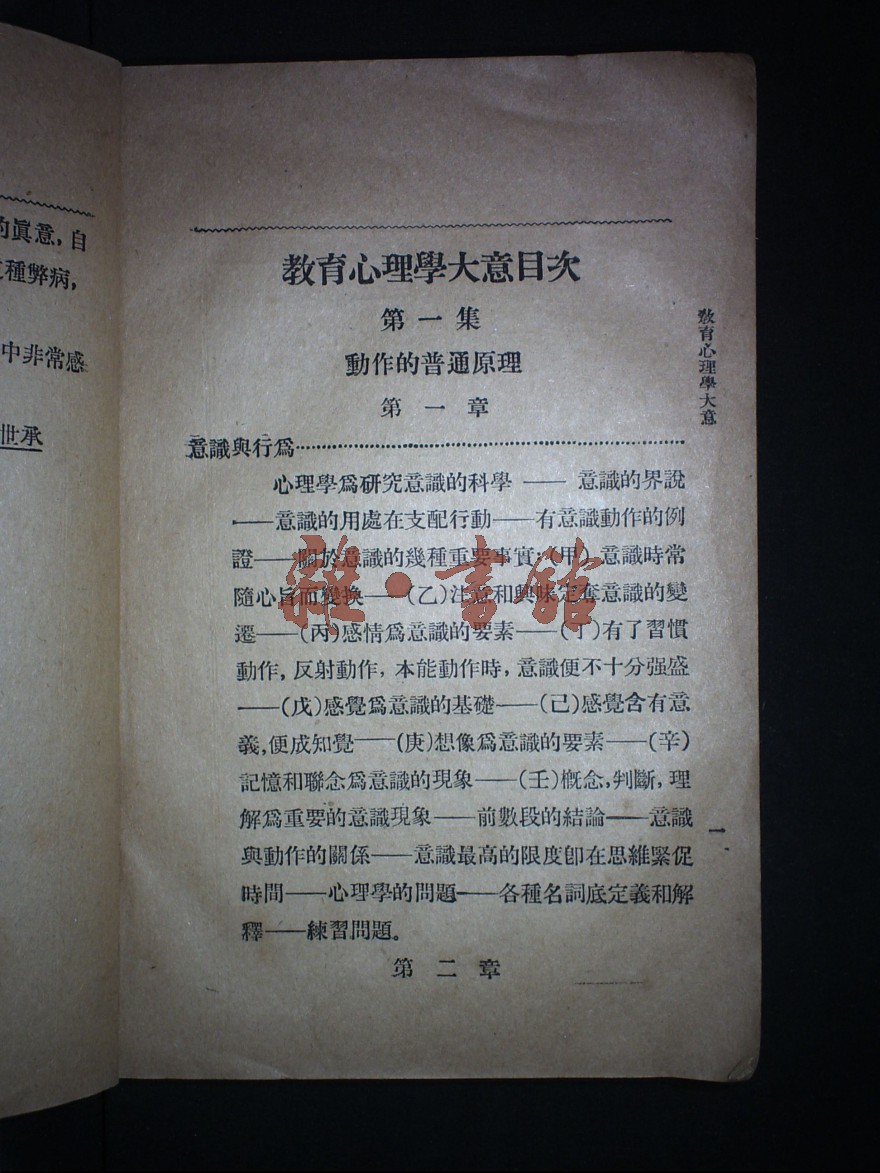 的眞意,自
種弊病,
中非常感
世承
教育心理學大意目次
第一集
動作的普通原理
第一章
意識與行爲………………………………………
心理學爲研究意識的科學——意識的界說
——意識的用處在支配行動——有意識動作的例
證——關於意識的幾種重要事實:(甲)意識時常
隨心旨而變換——(乙)注意和興味定奪意識的變
遷——(丙)感情爲意識的要素——(丁)有了習慣
動作,反射動作,本能動作時,意識便不十分强盛
——(戊)感覺爲意識的基礎——(己)感覺含有意
義,便成知覺——(庚)想像爲意識的要素——(辛)
記憶和聯念爲意識的現象——(壬)槪念,判斷,理
解爲重要的意識現象——前數段的結論——意識
與動作的關係——意識最高的限度卽在思維緊促
時間——心理學的問題——各種名詞底定義和解
釋——練習問題。
第二章
教育心理學大意
一
雜·書館